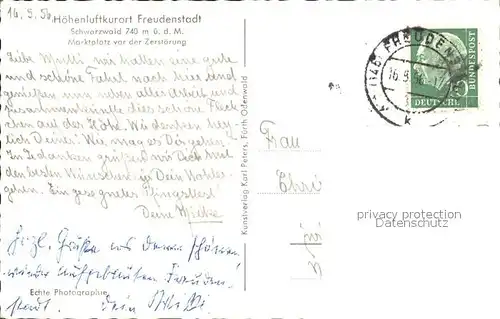 16.5.56.
Höhenluftkurort Freudenstadt
Schwarzwald 740 m ü. d. M.
Marktplatz vor der Zerstörung
Liebe Mutti wir hatten eine gute
und schöne Fahrt nach hier und
genießen nun neben aller Arbeit und
schöne Fleck
oben auf der Höhe. Wir denken herz-
lich Deiner. Wie mag es Dir gehen
In Gedanken grüßen wir Dich mit
den besten Wünschen in Dein Wohler-
gehen. Ein gesegnetes Pfingstfest!
Deine
Herzl. Grüße aus dem schönen
wieder aufgebauten Freuden-
stadt. Dein
Echte Photographie
Kunstverlag Karl Peters, Fürth Odenwald
FREUDEN
16.5.5
DEUTSCHE
BUNDESPOST
Frau
Chri
privacy protection
Datenschutz